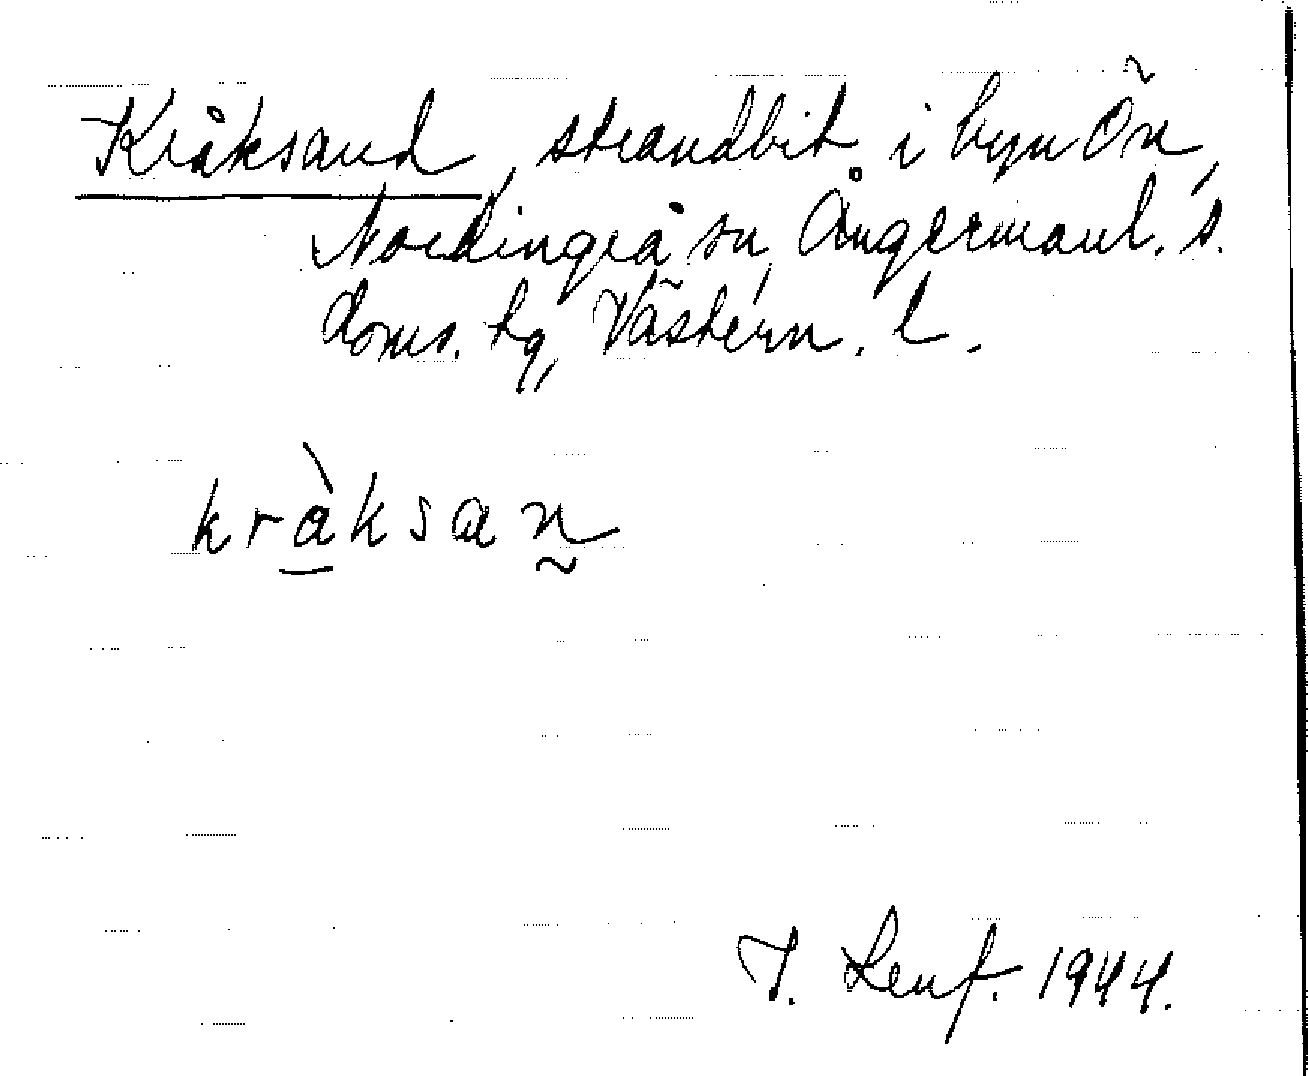 Kråksand, strandbit i byn Ön,
Nordingrå sn, Ångermanl. s.
doms. tg, Västern. l.
kràksan̰
I. Lenf. 1944.